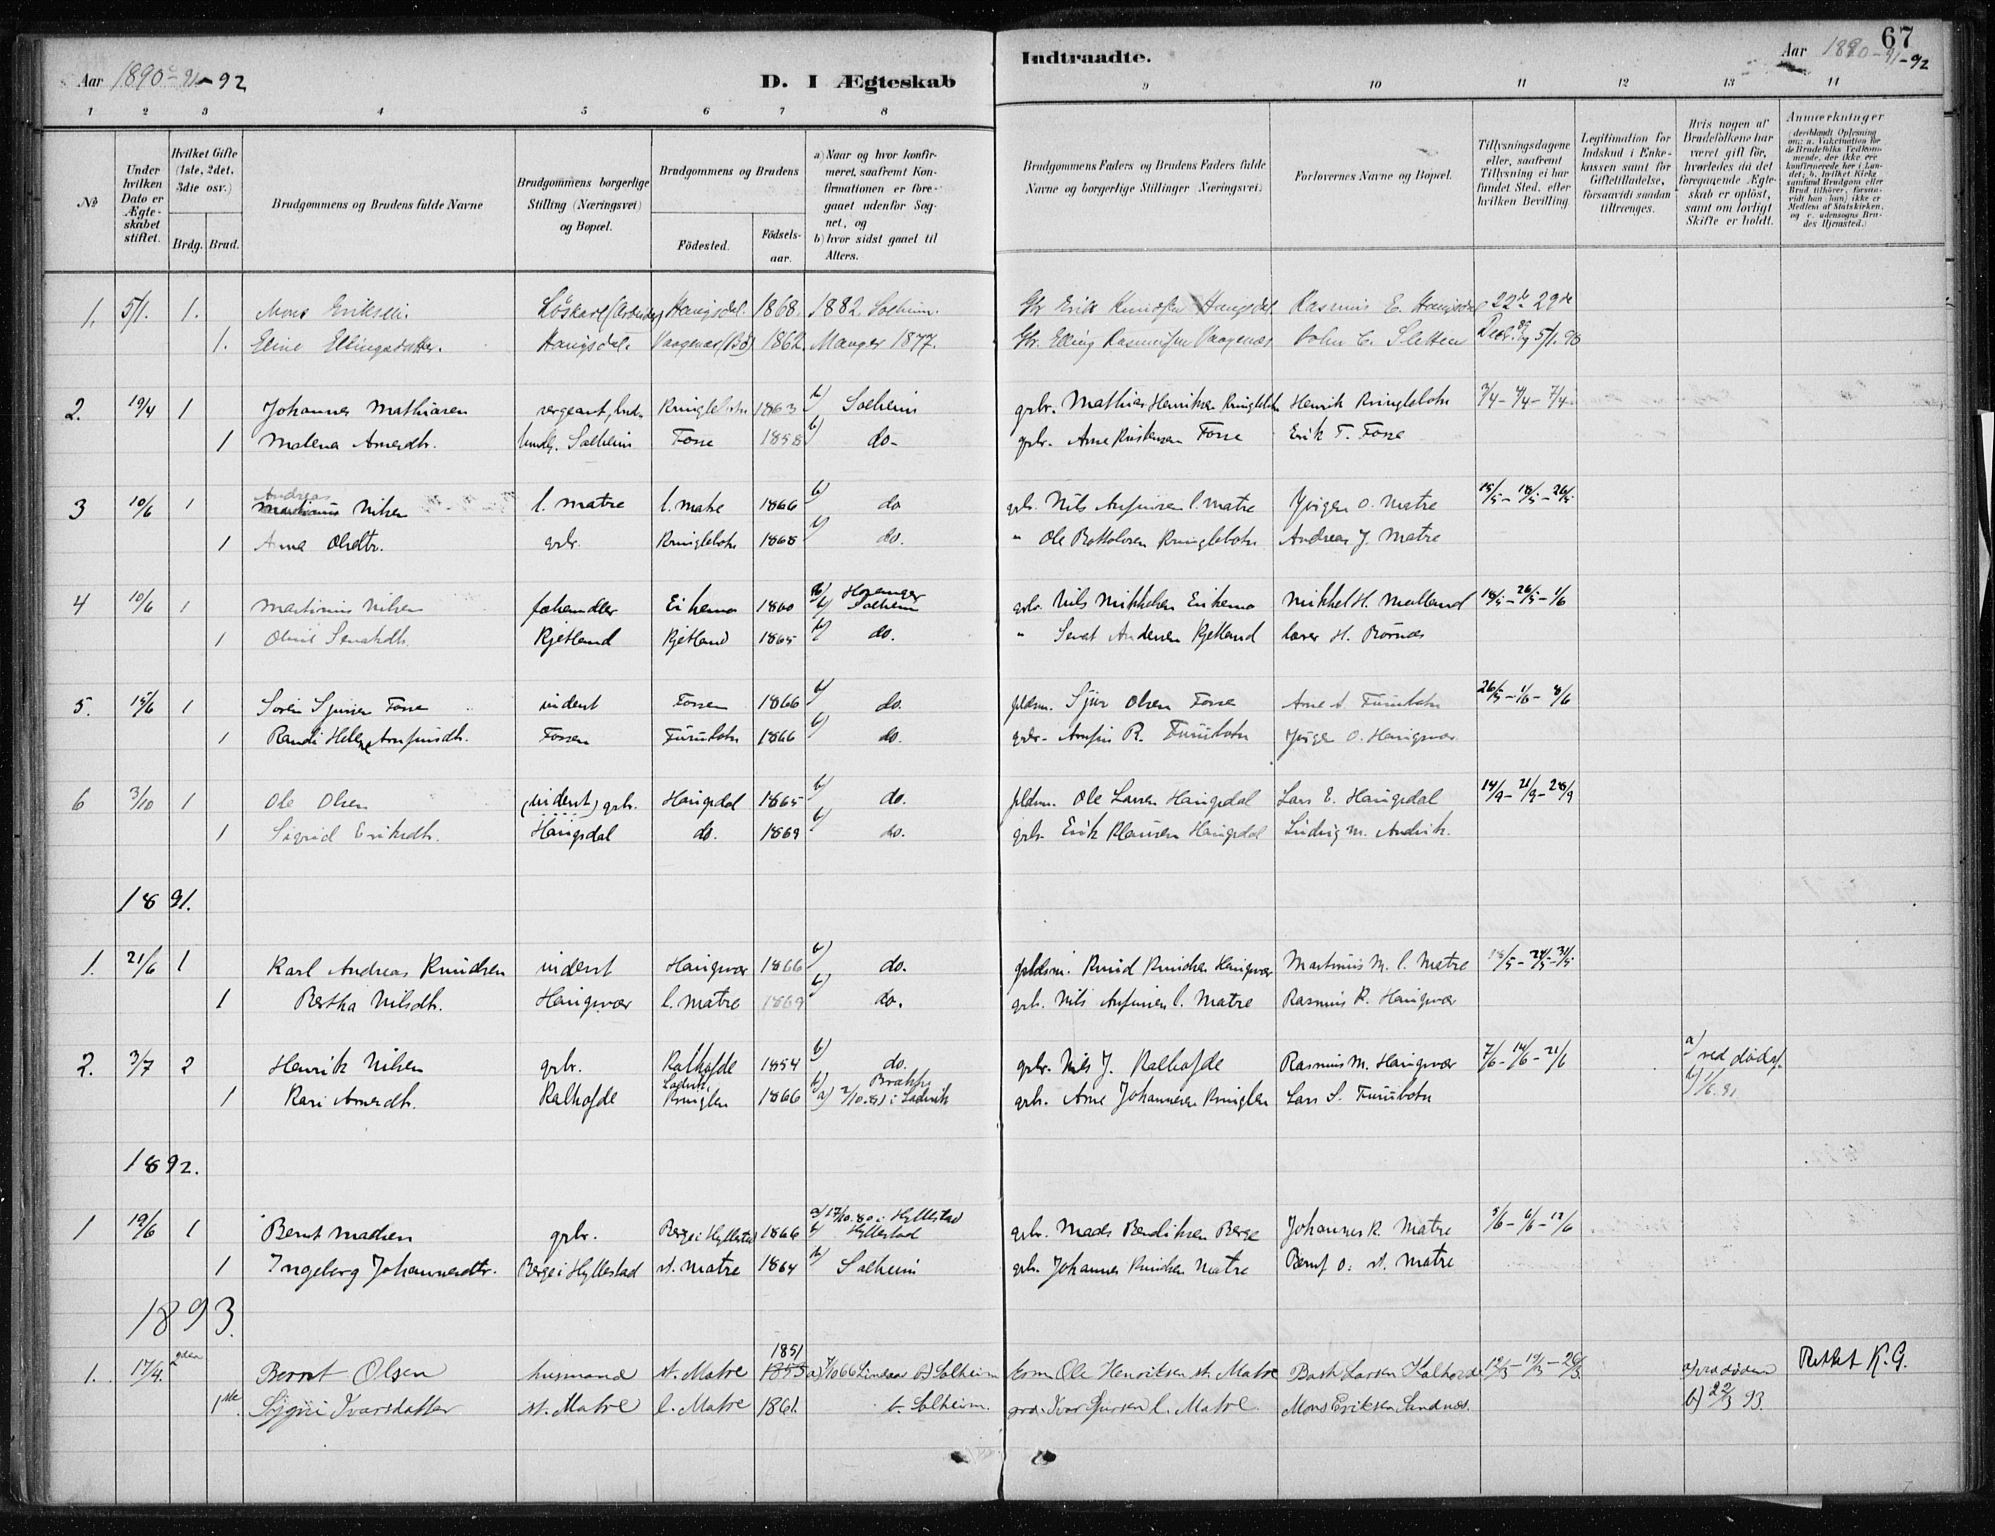 67
Aar 1890-91-92
D. I Ægteskab
Indtraadte.
Aar 1890-91-92
1 2 3 4 5 6 7 8 9 10 11 12 13 14
No
Under hvilken Dato er Ægteskabet stiftet.
Hvilket Gifte (1ste, 2det, 3die osv.)
Brdg. Brud.
Brudgommens og Brudens fulde Navne
Brudgommens borgerlige Stilling (Næringsvei) og Bopæl.
Brudgommens og Brudens
Födested.
Födsels-aar.
a) Naar og hvor konfirmeret, saafremt Konfirmationen er foregaaet udenfor Sognet, og
b) hvor sidst gaaet til Alters.
Brudgommens Faders og Brudens Faders fulde Navne og borgerlige Stillinger (Næringsvei)
Forlovernes Navne og Bopæl.
Tillysningsdagene eller, saafremt Tillysning ei har fundet Sted, efter hvilken Bevilling.
Legitimation for Indskud i Enkekassen samt for Giftetilladelse, forsaavidt saadan tiltrænges.
Hvis nogen af Brudefolkene har været gift för, hvorledes da det foregaaende Ægteskab er oplöst, samt om lovligt Skifte er holdt.
Anmærkninger
(deriblandt Oplysning om: a. Vakcination for de Brudefolks Vedkommende, der ikke ere konfirmerede her i Landet; b. hvilket Kirkesamfund Brudgom eller Brud tilhörer, forsaavidt han (hun) ikke er Medlem af Statskirken, og c. udensogns Brudes Hjemsted.)
1. 5/1. 1. Mons Eriksen. Löskarl (Arbeider) Haugsdal. 1868. 1882 Solheim. Gbr Erik Knudsen Haugsdal Rasmus E. Haugsdal 22de 29de
1. Eline Ellingsdatter. Haugsdal. Vaagenæs (Bö) 1862. Manger 1877. Gbr. Elling Rasmussen Vaagenæs John C. Sletten Decbr. 89 og 5/1. 90
2. 19/4 1 Johannes Mathiasen sergeant, Ind. Kringlebotn 1863 b) Solheim gbr. Mathias Henriksen Kringlebotn Henrik Kringlebotn 3/4 - 4/4 - 7/4
1 Malena Arnesdtr. Solheim Fosse 1858 b) do. gbr. Arne Kristensen Fosse Erik T. Fosse
3 10/6 1 Andreas Martinus Nilsen l. Matre l. Matre 1866 b) do gbr. Nils Anfinsen l. Matre Jörgen O. Matre 15/5 - 18/5 - 26/5
1 Anna Olsdtr. gbr. Kringlebotn 1868 b) do. " Ole Bottolvsen Kringlebotn Andreas J. Matre
4 10/6 1 Martinus Nilsen fæhandler Eikemo 1860 Hosanger b) Solheim gbr. Nils Mikkelsen Eikemo Mikkel H. Molland 18/5 - 26/5 - 1/6
1 Olivie Senatsdtr. Kjetland Kjetland 1865 b) do. " Senat Andersen Kjetland lærer H. Börnæs
5. 15/6 1 Sören Sjursen Fosse inderst Fossen 1866 b) do. pldsm. Sjur Olsen Fosse Arne A. Furubotn 26/5 - 1/6 - 8/6
1 Randi Helene Arnfinsdtr. Fossen Furubotn 1866 b) do. gbr. Arnfin R. Furubotn Jörgen O. Haugsvær
6 3/10 1 Ole Olsen (inderst) gbr. Haugsdal 1865 b) do. pldsm. Ole Larsen Haugsdal Lars E. Haugsdal 14/9 - 21/9 - 28/9
1 Sigrid Eriksdtr. Haugsdal do. 1869 b) do. gbr. Erik Klausen Haugsdal Ludvig M. Andvik.
1891.
1. 21/6 1 Karl Andreas Knudsen inderst Haugsvær 1866 b) do. pldsm. Knud Knudsen Haugsvær Martinus M. l. Matre 18/5 - 24/5 - 31/5
1 Bertha Nilsdtr. Haugsvær l. Matre 1869 b) do. gbr. Nils Anfinsen l. Matre Rasmus K. Haugsvær
2. 3/7 2 Henrik Nilsen gbr. Kalhofde 1854 b) do. gbr. Nils J. Kalhofde Rasmus M. Haugsvær 7/6 - 14/6 - 21/6 a) ved dödsf.
1 Kari Arnesdtr. Kalhofde Ladvik Kringlen 1866 b) Brække a) 2/10.81 i Ladvik gbr. Arne Johannesen Kringlen Lars S. Furubotn b) 1/6.91
1892.
1 19/6 1 Bernt Madsen gbr. Berge i Hyllestad 1866 a) 17/10.80 i Hyllestad b) Hyllestad gbr. Mads Bendiksen Berge Johannes K. Matre 5/6 - 6/6 - 12/6
1 Ingeborg Johannesdtr. Berge i Hyllestad st. Matre 1864 b) Solheim gbr. Johannes Knudsen Matre Bernt O. st. Matre
1893.
1. 17/4. 2den Bernt Olsen husmand st. Matre 1851 1855 a) 7/10 66 Lindaas b) Solheim Ole Henriksen st. Matre Larsen Kalhovde 12/3 - 19/3 - 26/3 a) ved döden Rettet K.G.
1ste Sigrid Ivarsdatter st. Matre l. Matre 1861. b. Solheim. Ivar Sjursen l. Matre. Mons Eriksen Sundnes. b) 22/3 93.